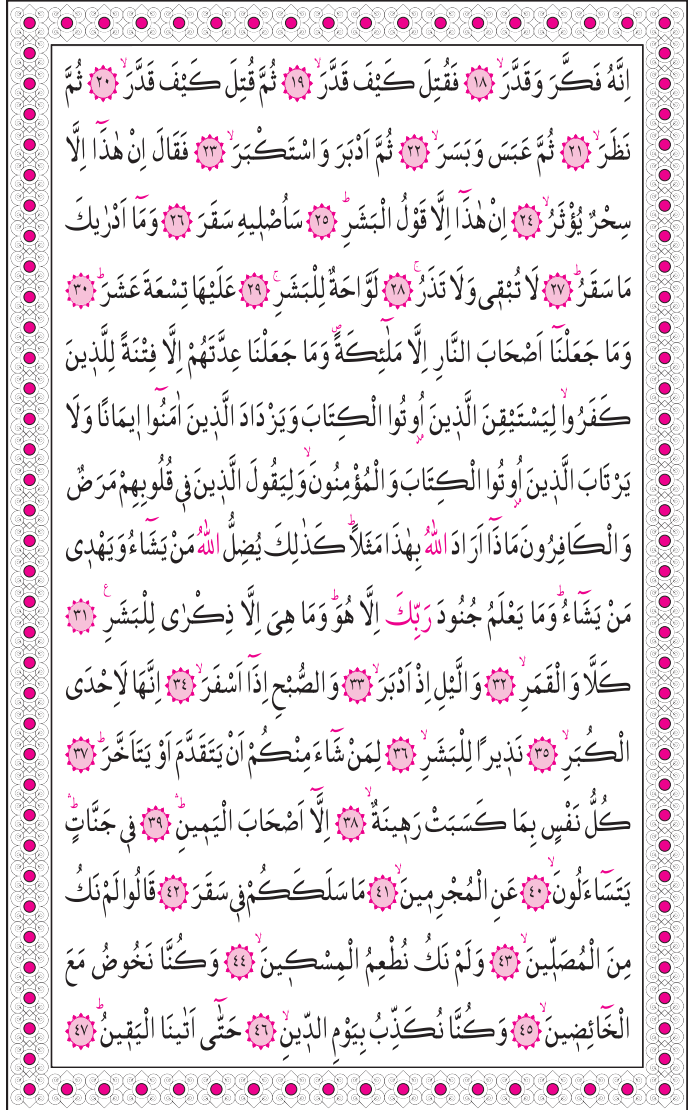 اِنَّهُ فَكَّرَ وَقَدَّرَۙ ﴿١٨﴾ فَقُتِلَ كَيْفَ قَدَّرَۙ ﴿١٩﴾ ثُمَّ قُتِلَ كَيْفَ قَدَّرَۙ ﴿٢٠﴾ ثُمَّ
نَظَرَۙ ﴿٢١﴾ ثُمَّ عَبَسَ وَبَسَرَۙ ﴿٢٢﴾ ثُمَّ اَدْبَرَ وَاسْتَكْبَرَۙ ﴿٢٣﴾ فَقَالَ اِنْ هٰذَٓا اِلَّا
سِحْرٌ يُؤْثَرُۙ ﴿٢٤﴾ اِنْ هٰذَٓا اِلَّا قَوْلُ الْبَشَرِۜ ﴿٢٥﴾ سَاُصْلٖيهِ سَقَرَ ﴿٢٦﴾ وَمَٓا اَدْرٰيكَ
مَا سَقَرُۜ ﴿٢٧﴾ لَا تُبْقٖى وَلَا تَذَرُۚ ﴿٢٨﴾ لَوَّاحَةٌ لِلْبَشَرِۚ ﴿٢٩﴾ عَلَيْهَا تِسْعَةَ عَشَرَۜ ﴿٣٠﴾
وَمَا جَعَلْنَٓا اَصْحَابَ النَّارِ اِلَّا مَلٰٓئِكَةًۖ وَمَا جَعَلْنَا عِدَّتَهُمْ اِلَّا فِتْنَةً لِلَّذٖينَ
كَفَرُواۙ لِيَسْتَيْقِنَ الَّذٖينَ اُوتُوا الْكِتَابَ وَيَزْدَادَ الَّذٖينَ اٰمَنُٓوا اٖيمَانًا وَلَا
يَرْتَابَ الَّذٖينَ اُوتُوا الْكِتَابَ وَالْمُؤْمِنُونَۙ وَلِيَقُولَ الَّذٖينَ فٖى قُلُوبِهِمْ مَرَضٌ
وَالْكَافِرُونَ مَاذَٓا اَرَادَ اللّٰهُ بِهٰذَا مَثَلًاۜ كَذٰلِكَ يُضِلُّ اللّٰهُ مَنْ يَشَٓاءُ وَيَهْدٖى
مَنْ يَشَٓاءُۜ وَمَا يَعْلَمُ جُنُودَ رَبِّكَ اِلَّا هُوَۜ وَمَا هِىَ اِلَّا ذِكْرٰى لِلْبَشَرِࣖ ﴿٣١﴾
كَلَّا وَالْقَمَرِۙ ﴿٣٢﴾ وَالَّيْلِ اِذْ اَدْبَرَۙ ﴿٣٣﴾ وَالصُّبْحِ اِذَٓا اَسْفَرَۙ ﴿٣٤﴾ اِنَّهَا لَاِحْدَى
الْكُبَرِۙ ﴿٣٥﴾ نَذٖيرًا لِلْبَشَرِۙ ﴿٣٦﴾ لِمَنْ شَٓاءَ مِنْكُمْ اَنْ يَتَقَدَّمَ اَوْ يَتَاَخَّرَۜ ﴿٣٧﴾
كُلُّ نَفْسٍ بِمَا كَسَبَتْ رَهٖينَةٌۙ ﴿٣٨﴾ اِلَّٓا اَصْحَابَ الْيَمٖينِۜۛ ﴿٣٩﴾ فٖى جَنَّاتٍۜۛ
يَتَسَٓاءَلُونَۙ ﴿٤٠﴾ عَنِ الْمُجْرِمٖينَۙ ﴿٤١﴾ مَا سَلَكَكُمْ فٖى سَقَرَ ﴿٤٢﴾ قَالُوا لَمْ نَكُ
مِنَ الْمُصَلّٖينَۙ ﴿٤٣﴾ وَلَمْ نَكُ نُطْعِمُ الْمِسْكٖينَۙ ﴿٤٤﴾ وَكُنَّا نَخُوضُ مَعَ
الْخَٓائِضٖينَۙ ﴿٤٥﴾ وَكُنَّا نُكَذِّبُ بِيَوْمِ الدّٖينِۙ ﴿٤٦﴾ حَتّٰٓى اَتٰينَا الْيَقٖينُۜ ﴿٤٧﴾